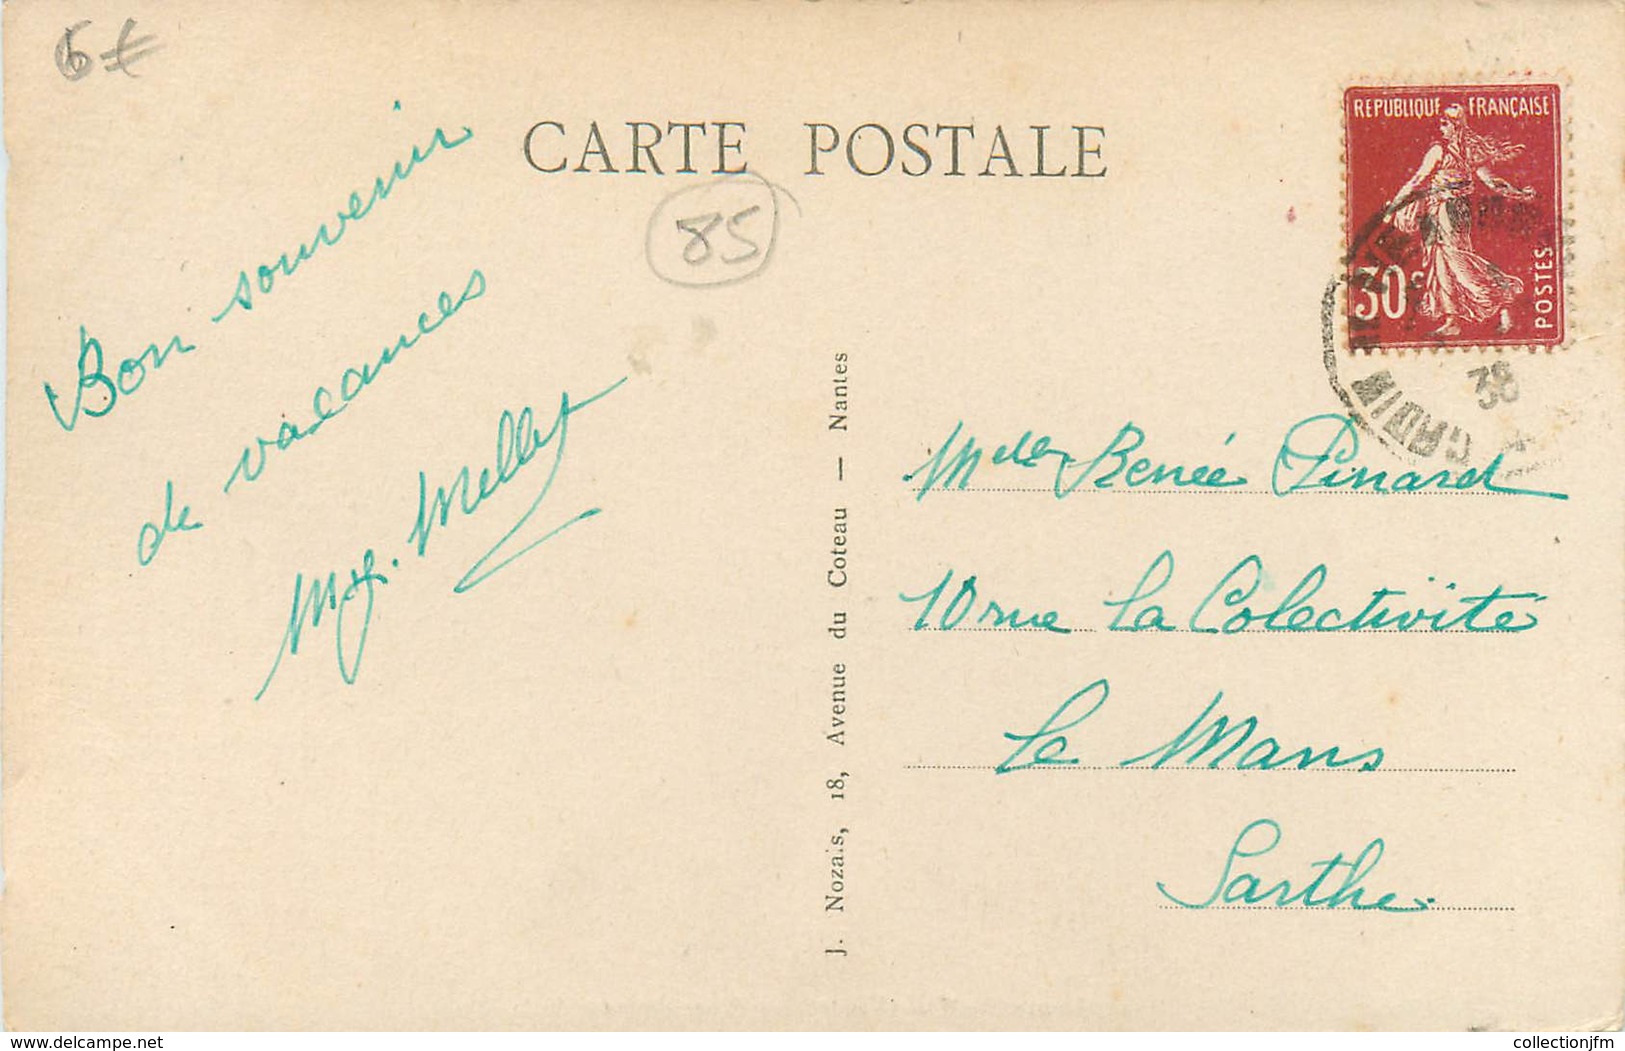 6 €
CARTE POSTALE
REPUBLIQUE FRANÇAISE
30c
POSTES
38
85
Bon souvenir
de vacances
J. Nozais, 18, Avenue du Coteau — Nantes
Mdelle Renée Pinard
10 rue La Colectivité
Le Mans
Sarthe.
www.delcampe.net
collectionjfm